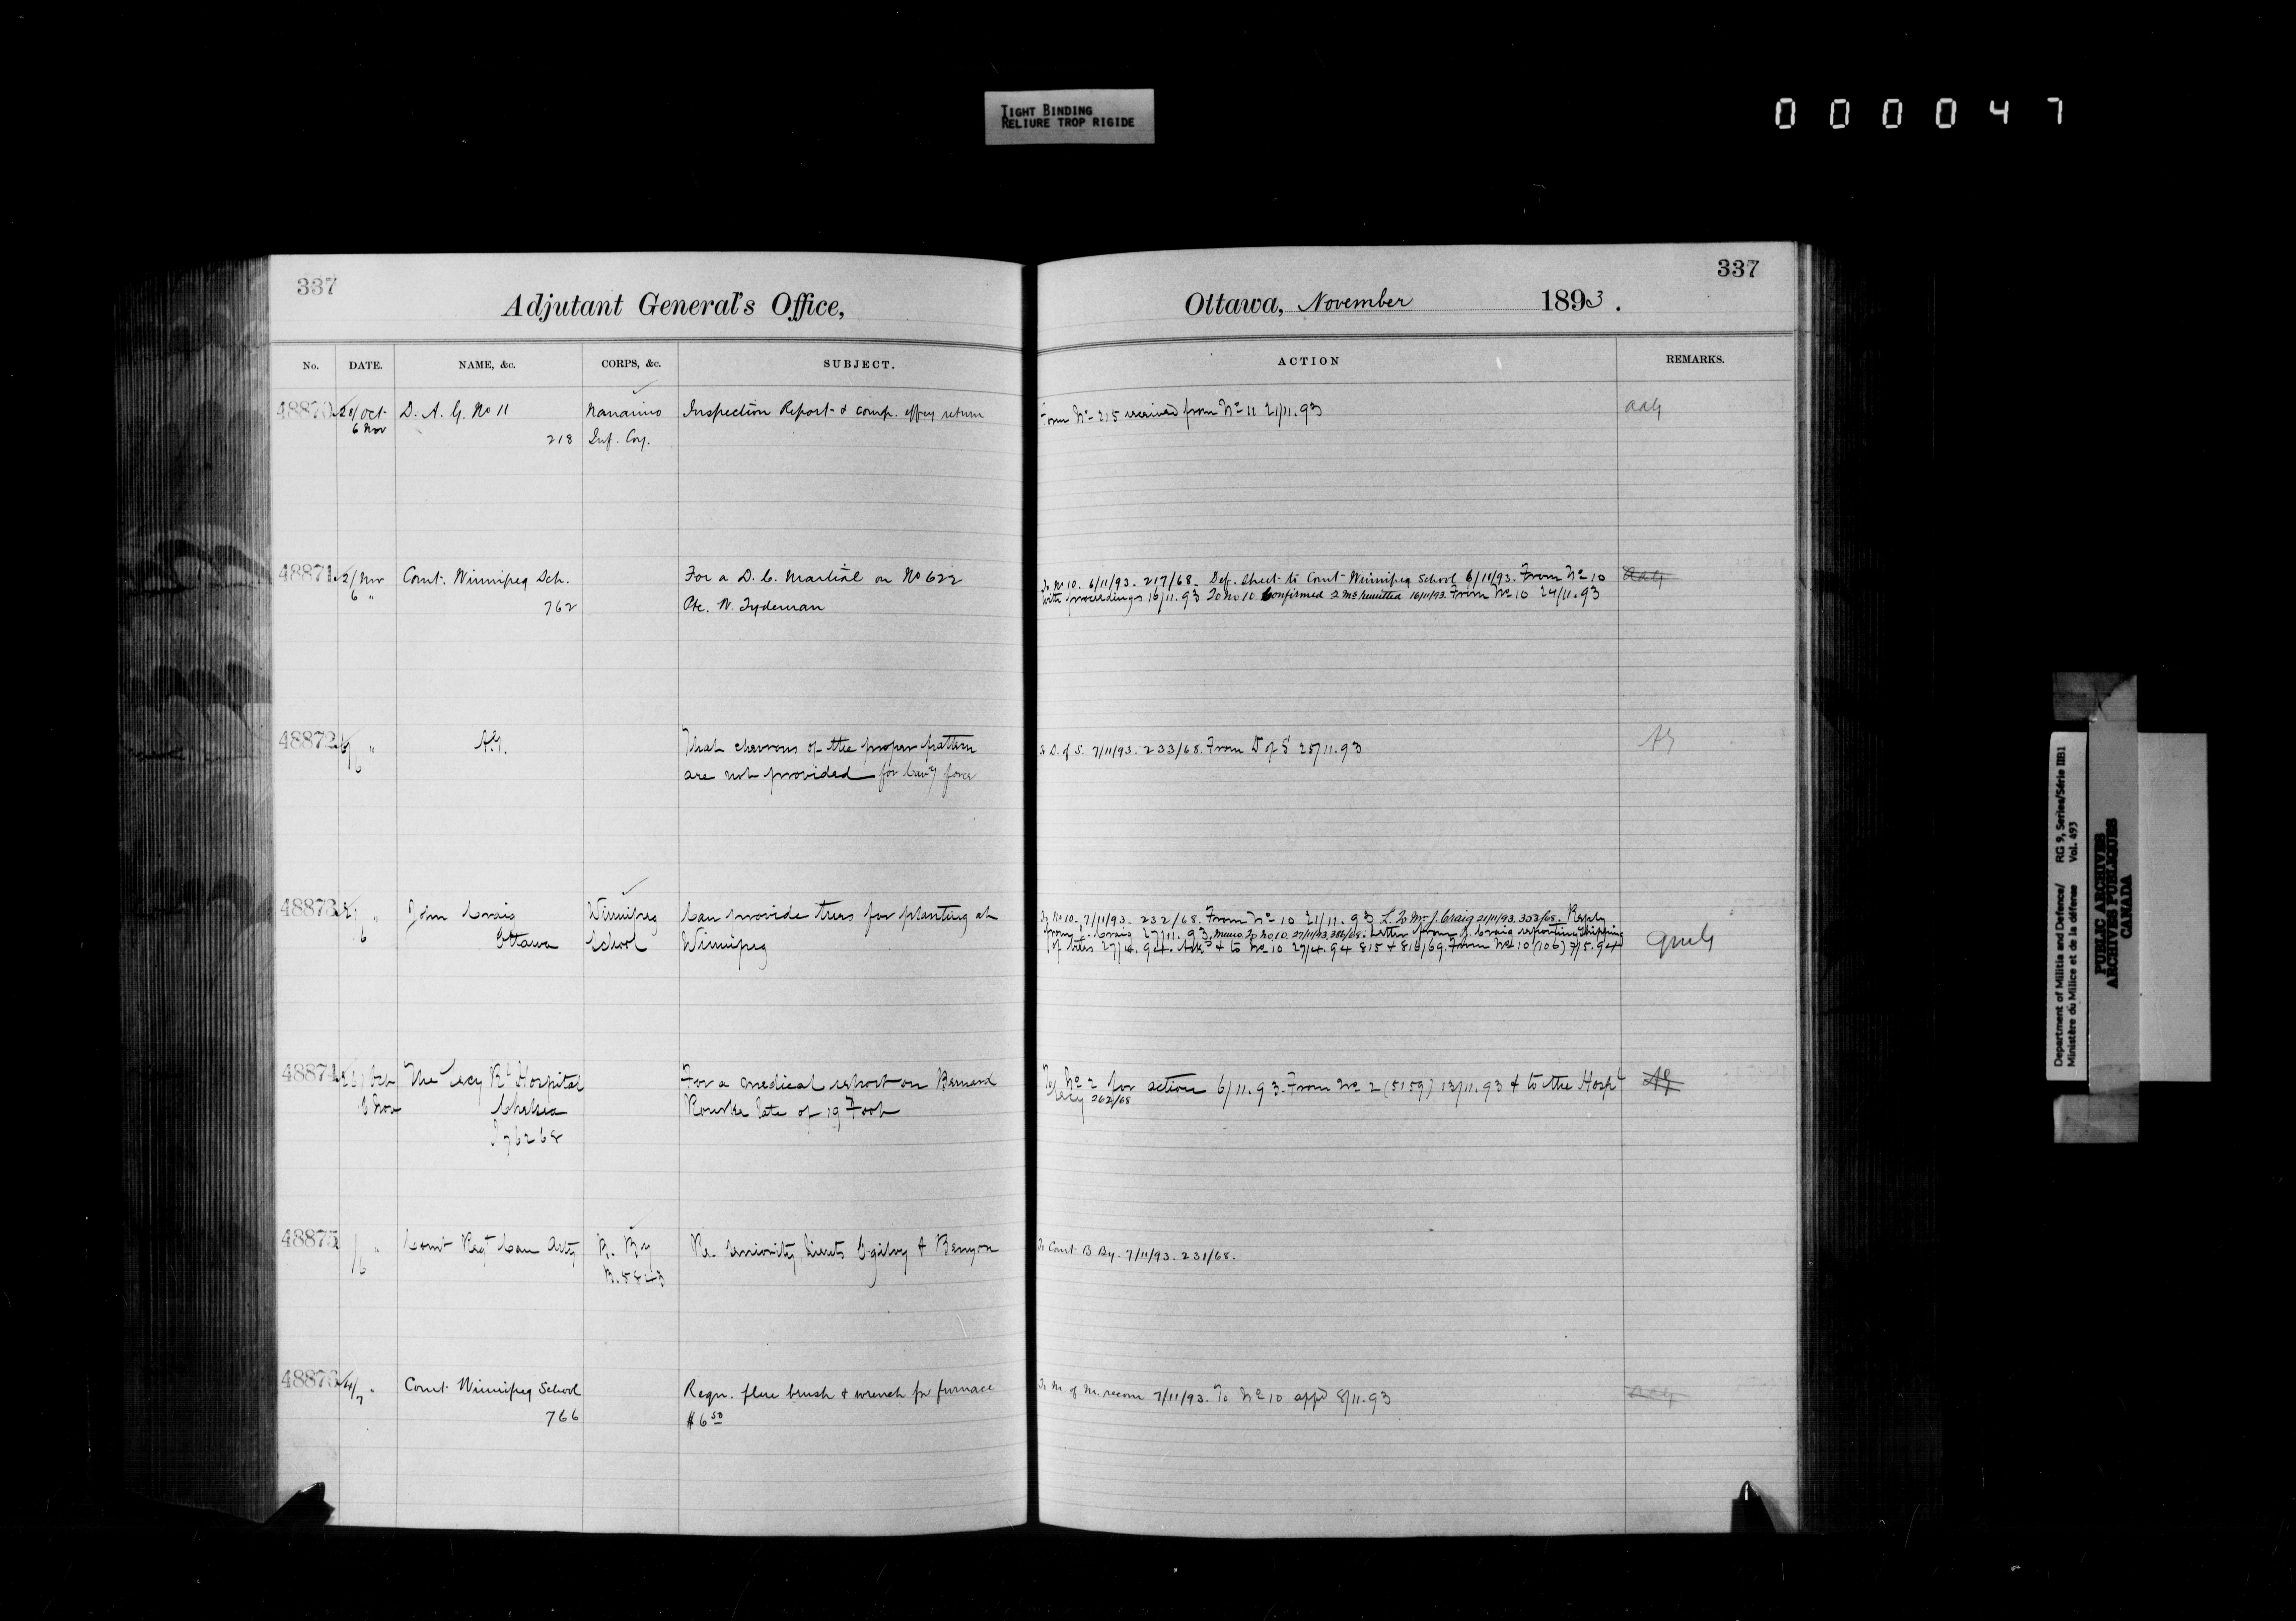 TIGHT BINDING
RELIURE TROP RIGIDE
000047
337
Adjutant General's Office,
No. DATE. NAME, &c. CORPS, &c. SUBJECT.
48870 Oct D. A. G. No 11 Nanaimo Inspection Report & comp. return
6 Nov 218 Inf. Coy.
48871 2/Nov Comt. Winnipeg Sch. For a D. C. Martial on No 622
6 " 762 Pte. W. Tydeman
48872 6 " A.G. That chevrons of the proper pattern
are not provided for Cavy force
48873 " John Craig Winnipeg Can provide trees for planting at
6 Ottawa School Winnipeg
48874 The Secy Rl Hospital For a medical report on Bernard
6 Nov Chelsea Rourke late of 19 Foot
48875 " Comt Regt Can Arty B. By Re seniority Lieuts Ogilvy & Benyon
6
48876 4/ " Comt Winnipeg School Reqn. flue brush & wrench for furnace
7 766 $6 50
337
Ottawa, November 1893.
ACTION REMARKS.
Form No 215 received from No 11 21/11.93 AAG
To No 10. 6/11/93. 217/68. Def. Sheet to Comt Winnipeg School 6/11/93. From No 10 AAG
with proceedings 16/11.93 To No 10. Confirmed 2 Ms remitted 16/11/93. From No 10 24/11.93
To D. of S. 7/11/93. 233/68. From D of S 25/11.93 AG
To No 10. 7/11/93. 232/68. From No 10 21/11.93 L. To Mr J. Craig 21/11/93. 353/68. Reply
from J. Craig 27/11.93. Memo. To No 10. 27/11/93. Letter from J. Craig reporting shipping
of trees 27/4.94. Ack & to No 10 27/4.94 815 & 816/69. From No 10 (106) 7/5.94 QMG
To No 2 for action 6/11.93. From No 2 (5159) 13/11.93 & to the Hospl AG
Secy 262/68
To Comt B By. 7/11/93. 231/68.
To M. of M. recom 7/11/93. To No 10 appd 8/11.93 AAG
Department of Militia and Defence/ RG 9, Series/Série IIB1
Ministère du Milice et de la défense Vol. 493
PUBLIC ARCHIVES
ARCHIVES PUBLIQUES
CANADA